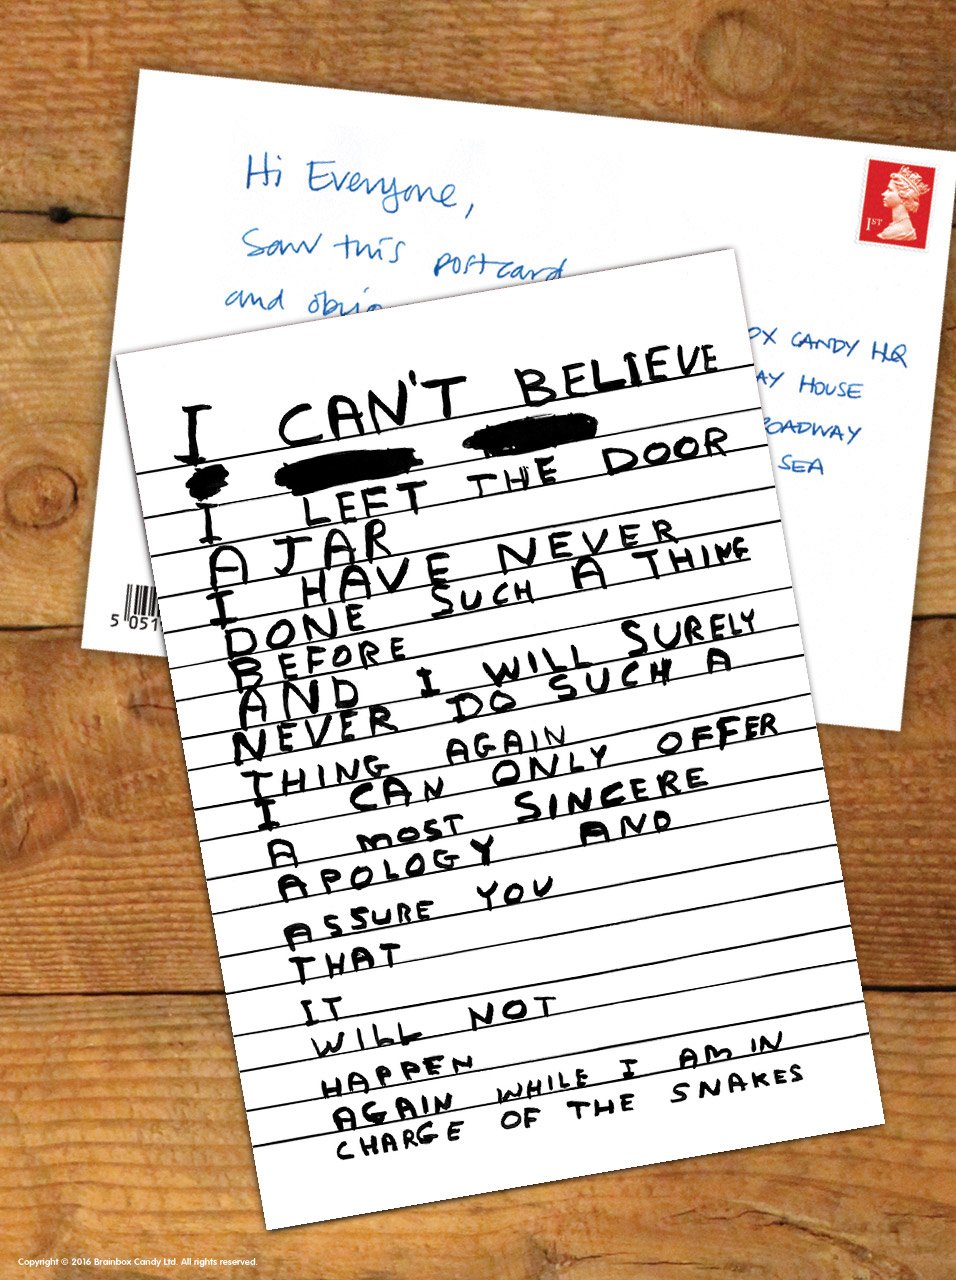 Hi Everyone,
Saw this postcard
and
1ST
CANDY HQ
HOUSE
SEA
I CAN'T BELIEVE
I LEFT THE DOOR
AJAR
I HAVE NEVER
DONE SUCH A THING
BEFORE
AND I WILL SURELY
NEVER DO SUCH A
THING AGAIN
I CAN ONLY OFFER
A MOST SINCERE
APOLOGY AND
ASSURE YOU
THAT
IT
WILL NOT
HAPPEN
AGAIN WHILE I AM IN
CHARGE OF THE SNAKES
5 051
Copyright © 2016 Brainbox Candy Ltd. All rights reserved.